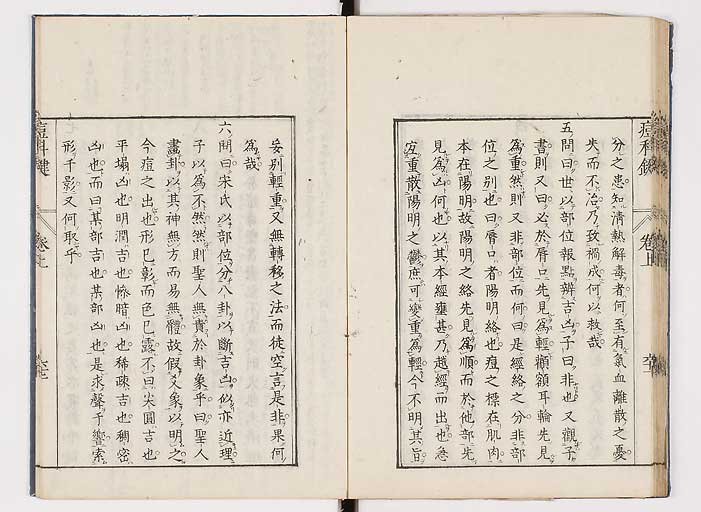 分之患知清熱解毒者何至有氣血離散之憂
失而不治乃致禍成何以救哉
五問曰世以部位報點辨吉凶子曰非也又觀子
書則又曰必於脣口先見爲輕顴額耳輪先見
爲重然則又非部位而何曰是經絡之分非部
位之別也曰脣口者陽明絡也痘之標在肌肉
本在陽明故陽明之絡先見爲順而於他部先
見爲凶何也以其本經壅甚乃越經而出也急
宜重散陽明之鬱庶可變重爲輕今不明其旨
妄別輕重又無轉移之法而徒空言是非果何
爲哉
六問曰宋氏以部位分八卦以斷吉凶似亦近理
子以爲不然然則聖人無貴於卦象乎曰聖人
畫卦以其神無方而易無體故假乂象以明之
今痘之出也形已彰而色已露不曰尖圓吉也
平塌凶也明潤吉也慘暗凶也稀疎吉也稠密
凶也而曰某部吉也某部凶也是求聲于響索
形于影又何取乎
痘科鍵
卷上